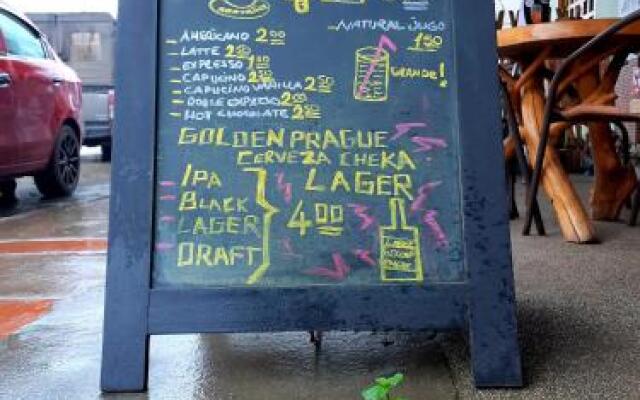 - AMERICANO 2.00
- LATTE 2.50
- EXPRESSO 1.50
- CAPUCINO 2.50
- CAPUCINO VANILLA 2.50
- DOBLE EXPRESSO 2.00
- HOT CHOCOLATE 2.50
NATURAL JUGO
1.50
GRANDE!
GOLDEN PRAGUE
CERVEZA CHEKA
LAGER
- IPA
- BLACK
- LAGER
- DRAFT
4.00